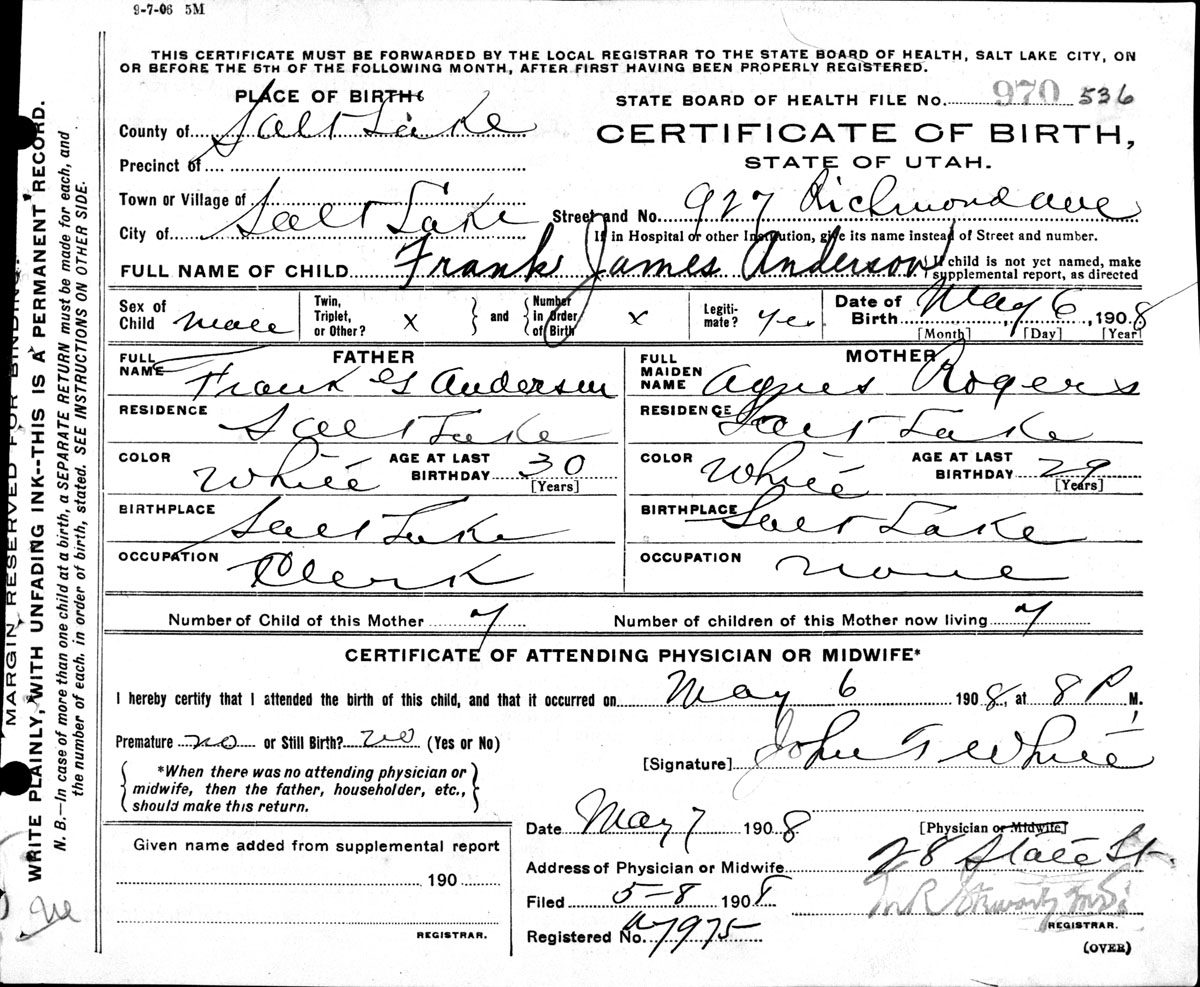 9-7-06 5M
THIS CERTIFICATE MUST BE FORWARDED BY THE LOCAL REGISTRAR TO THE STATE BOARD OF HEALTH, SALT LAKE CITY, ON
OR BEFORE THE 5TH OF THE FOLLOWING MONTH, AFTER FIRST HAVING BEEN PROPERLY REGISTERED.
PLACE OF BIRTH
STATE BOARD OF HEALTH FILE NO. 970 536
County of Salt Lake
CERTIFICATE OF BIRTH,
Precinct of
STATE OF UTAH.
Town or Village of
City of Salt Lake Street and No. 927 Richmond ave
If in Hospital or other Institution, give its name instead of Street and number.
FULL NAME OF CHILD Frank James Anderson
If child is not yet named, make
supplemental report, as directed
Sex of Child Male
Twin, Triplet, or Other? X
and Number in Order of Birth X
Legiti-mate? Yes
Date of Birth May 6, 1908
[Month] [Day] [Year]
FATHER
FULL NAME Frank G Anderson
RESIDENCE Salt Lake
COLOR White AGE AT LAST BIRTHDAY 30
[Years]
BIRTHPLACE Salt Lake
OCCUPATION Clerk
MOTHER
FULL MAIDEN NAME Agnes Rogers
RESIDENCE Salt Lake
COLOR White AGE AT LAST BIRTHDAY 29
[Years]
BIRTHPLACE Salt Lake
OCCUPATION none
Number of Child of this Mother 7 Number of children of this Mother now living 7
CERTIFICATE OF ATTENDING PHYSICIAN OR MIDWIFE*
I hereby certify that I attended the birth of this child, and that it occurred on May 6 1908, at 8 P M.
Premature no or Still Birth? no (Yes or No)
[Signature] John T White
*When there was no attending physician or
midwife, then the father, householder, etc.,
should make this return.
Date May 7 1908
[Physician or Midwife]
Address of Physician or Midwife 28 State St.
Filed 5-8 1908
REGISTRAR.
Registered No. a7975
(OVER)
Given name added from supplemental report
190
REGISTRAR.
MARGIN RESERVED FOR BINDING.
WRITE PLAINLY, WITH UNFADING INK--THIS IS A PERMANENT RECORD.
N. B.—In case of more than one child at a birth, a SEPARATE RETURN must be made for each, and
the number of each, in order of birth, stated. SEE INSTRUCTIONS ON OTHER SIDE.